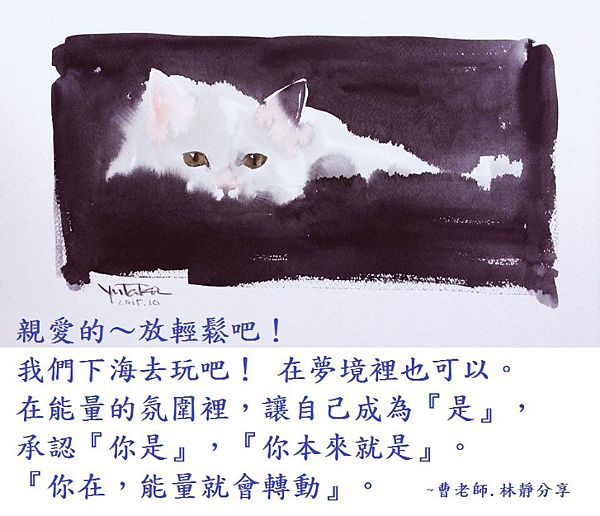 Yutaka
2015.10
親愛的～放輕鬆吧！
我們下海去玩吧！ 在夢境裡也可以。
在能量的氛圍裡，讓自己成為『是』，
承認『你是』，『你本來就是』。
『你在，能量就會轉動』。 ~曹老師.林靜分享